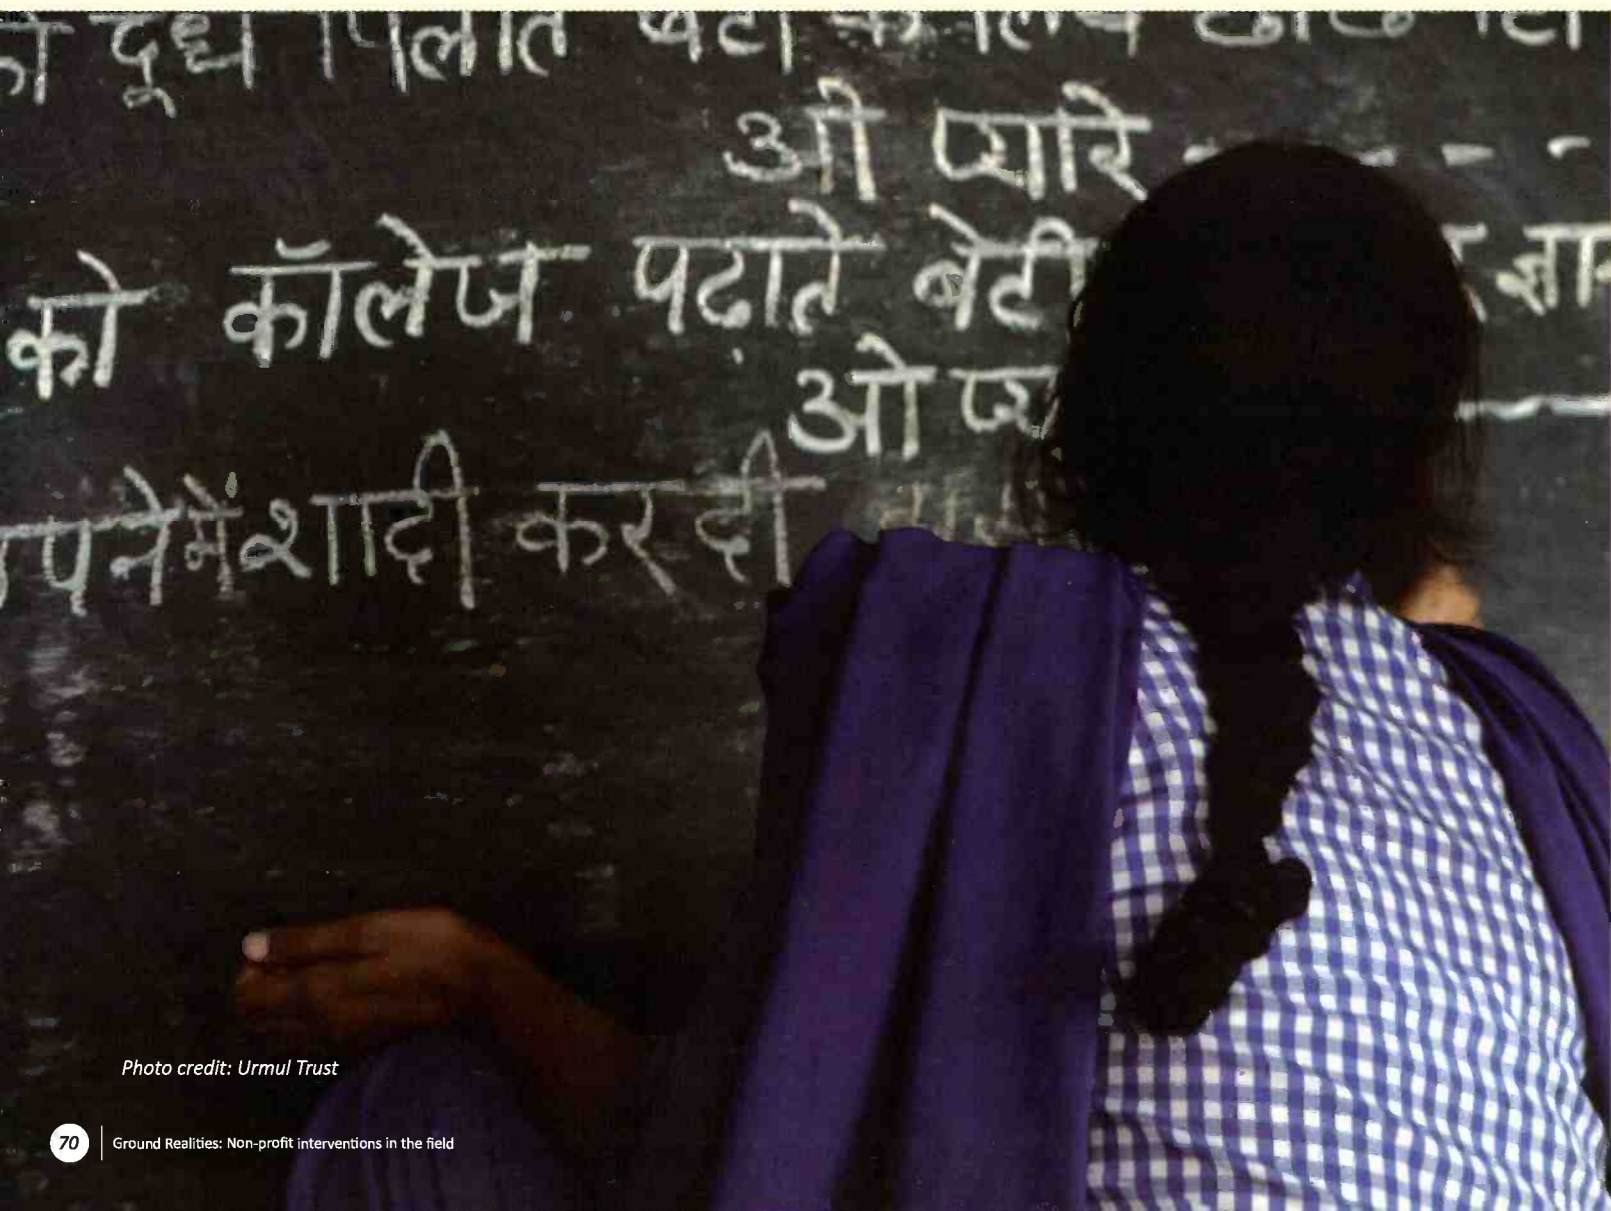 दूध पिलाते बेटी के लिये छाछ
ओ प्यारे - - - -
को कॉलेज पढ़ाते बेटी
ओ
शादी कर दी
Photo credit: Urmul Trust
70 Ground Realities: Non-profit interventions in the field